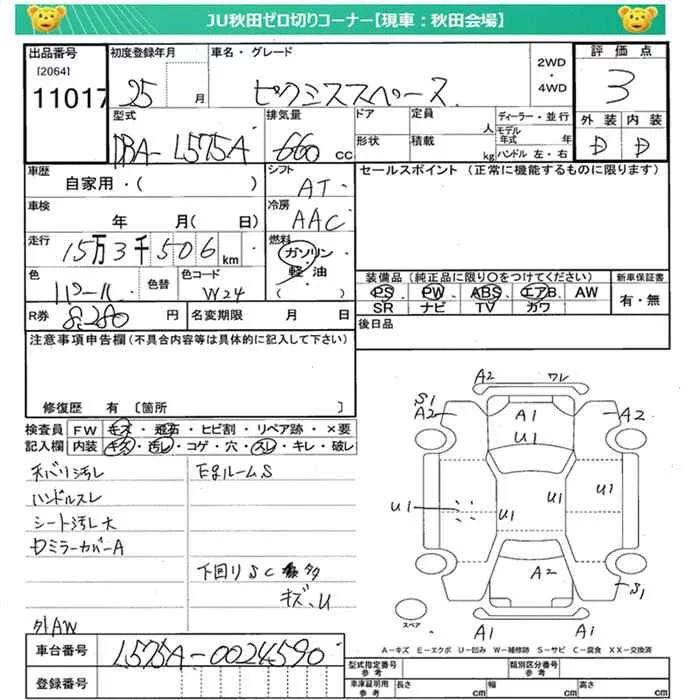 JU秋田ゼロ切りコーナー【現車：秋田会場】
出品番号 初度登録年月 車名・グレード 2WD・4WD 評価点
[2064]
11017 25 月 ピクシススペース 3
型式 排気量 ドア 定員 人 ディーラー・並行 外装 内装
DBA-L575A 660 cc 形状 積載 kg モデル年式 年 ハンドル 左・右 D D
車歴 シフト セールスポイント（正常に機能するものに限ります）
自家用・（ ） AT
車検 冷房
年 月（ 日） AAC
走行 燃料
15万3千506km ガソリン
軽油
（ ）
色 色替 色コード 装備品（純正品に限り○をつけてください） 新車保証書
パール W24 PS PW ABS エアB AW 有・無
SR ナビ TV カワ
R券 8,280 円 名変期限 月 日 後日品
注意事項申告欄（不具合内容等は具体的に記入して下さい）
修復歴 有〔箇所 〕
検査員 FW キズ・飛石・ヒビ割・リペア跡・×要
記入欄 内装 キズ・汚レ・コゲ・穴・スレ・キレ・破レ
天バリ汚レ EgルームS
ハンドルスレ
シート汚レ大
ミラーカバーA
下回りSC 多
キズ、U
外AW
A2 ワレ
S1
A2 A1 A2
U1
U1 U1 U1 U1
A2
S1
A1 A1
スペア
A－キズ E－エクボ U－凹み W－補修跡 S－サビ C－腐食 XX－交換済
車台番号 L575A-0024590
型式指定番号 参考 類別区分番号 参考
登録番号 車庫証明用 参考 長さ cm 幅 cm 高さ cm